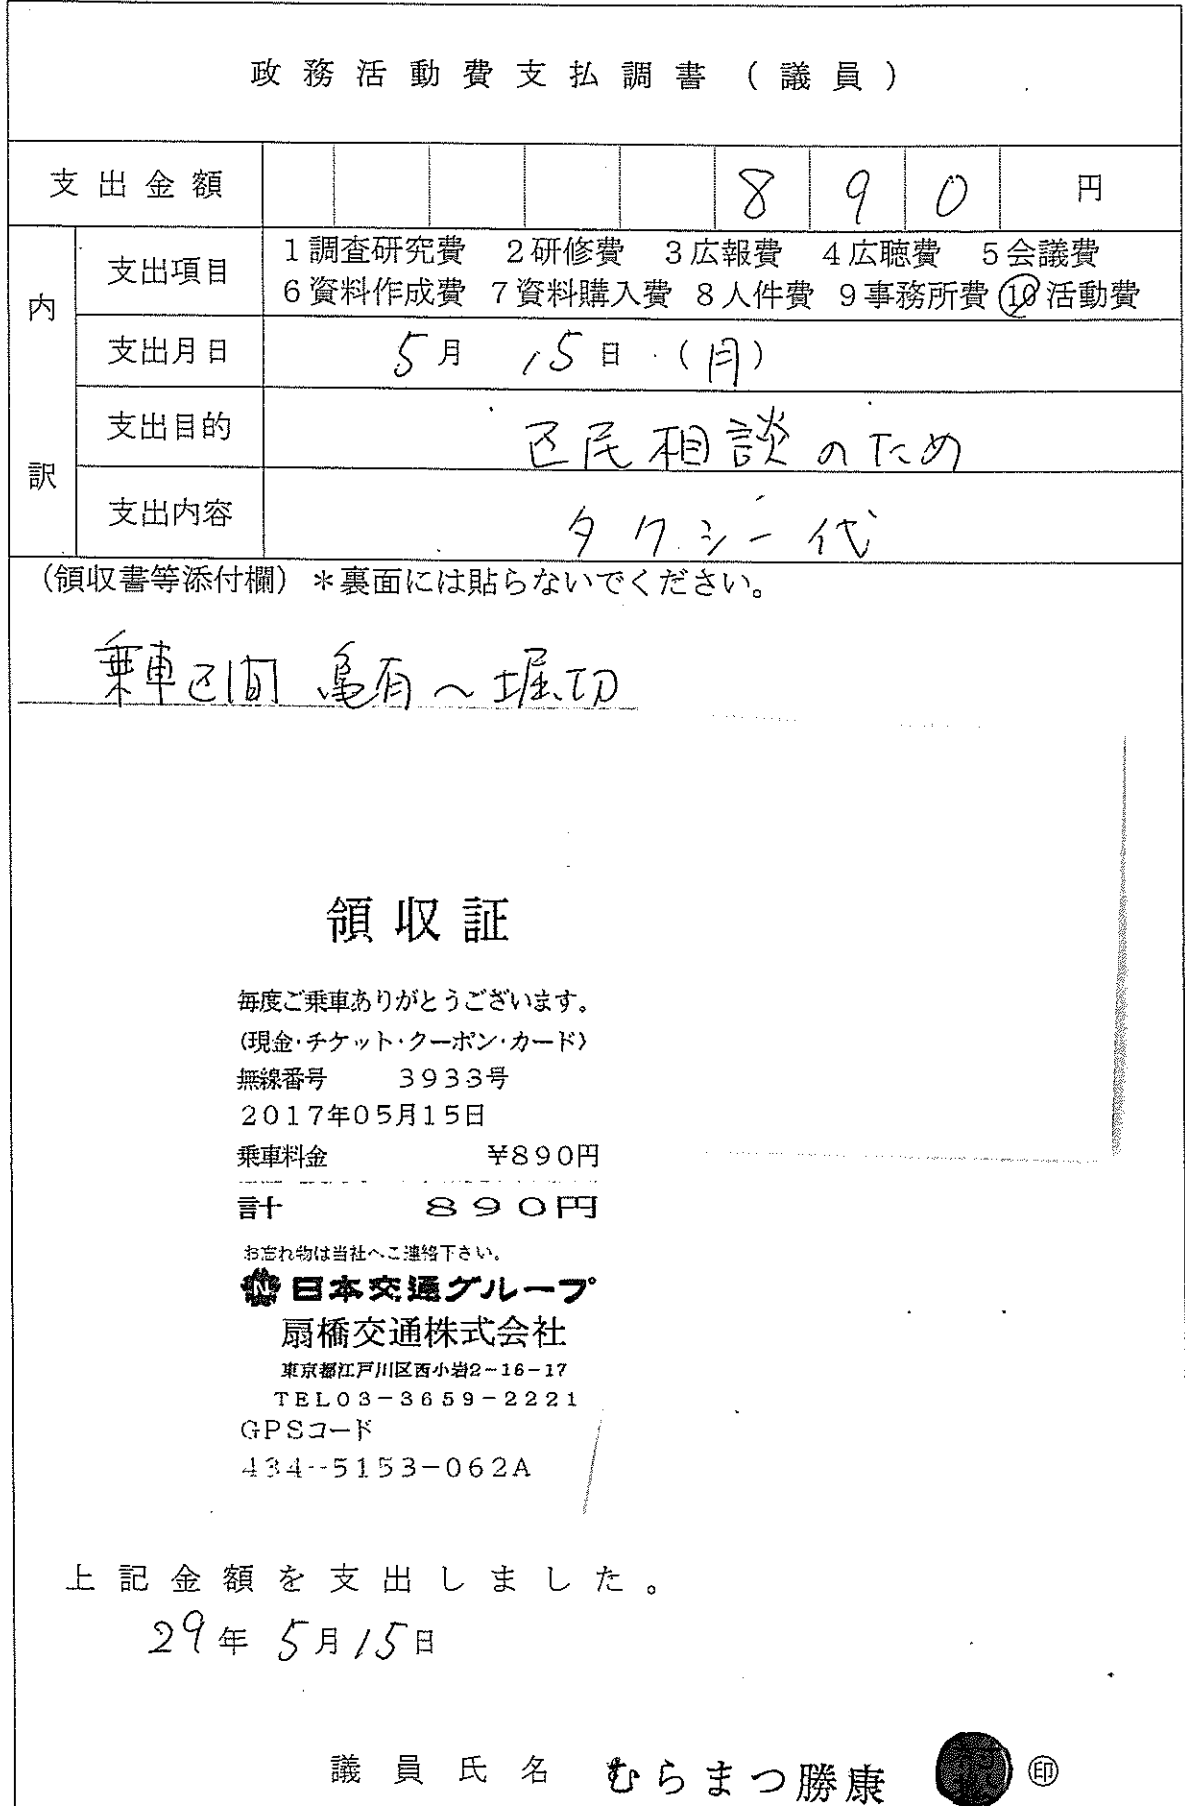 政務活動費支払調書（議員）
支出金額 890円
内訳
支出項目 1調査研究費 2研修費 3広報費 4広聴費 5会議費
6資料作成費 7資料購入費 8人件費 9事務所費 10活動費
支出月日 5月15日（月）
支出目的 区民相談のため
支出内容 タクシー代
（領収書等添付欄）＊裏面には貼らないでください。
乗車区間 亀有～堀切
領収証
毎度ご乗車ありがとうございます。
（現金・チケット・クーポン・カード）
無線番号 3933号
2017年05月15日
乗車料金 ¥890円
計 890円
お忘れ物は当社へご連絡下さい。
N 日本交通グループ
扇橋交通株式会社
東京都江戸川区西小岩2-16-17
TEL03-3659-2221
GPSコード
434-5153-062A
上記金額を支出しました。
29年5月15日
議員氏名 むらまつ勝康 ㊞